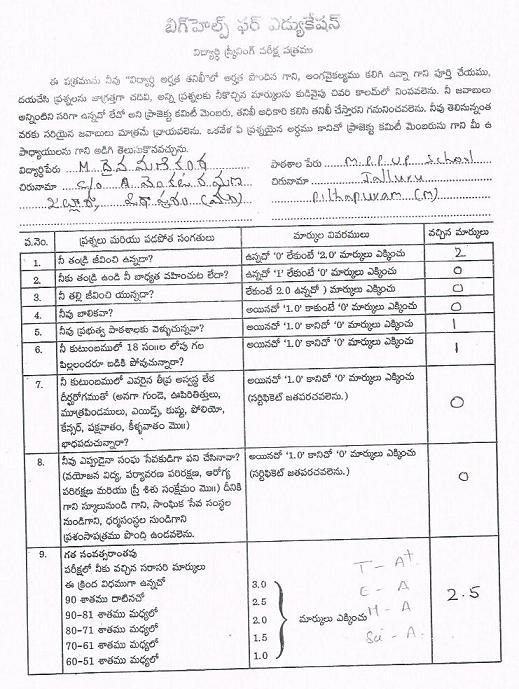 బిగ్‌హెల్ప్ ఫర్ ఎడ్యుకేషన్
విద్యార్థి స్క్రీనింగ్ పరీక్ష పత్రము
ఈ పత్రమును నీవు "విద్యార్థి అర్హత తనిఖీ"లో అర్హత పొందిన గాని, అంగవైకల్యము కలిగి ఉన్నా గాని పూర్తి చేయుము,
దయచేసి ప్రశ్నలను జాగ్రత్తగా చదివి, అన్ని ప్రశ్నలకు నీకొచ్చిన మార్కులను కుడివైపు చివరి కాలమ్‌లో నింపవలెను. నీ జవాబులు
అన్నింటిని సరిగా ఉన్నవో లేవో అని ప్రాజెక్టు కమిటీ మెంబరు, తనిఖీ అధికారి కలిసి తనిఖీ చేస్తారని గమనించవలెను. నీవు తెలిసున్నంత
వరకు సరియైన జవాబులు మాత్రమే వ్రాయవలెను. ఒకవేళ ఏ ప్రశ్నయైన అర్థము కానిచో ప్రాజెక్టు కమిటీ మెంబరును గాని మీ ఉ
పాధ్యాయులను గాని అడిగి తెలుసుకొనవచ్చును.
విద్యార్థిపేరు M. దైవ మణికంఠ పాఠశాల పేరు M.P.P UP School
చిరునామా C/o A. వెంకట రమణ చిరునామా Jalluru
జల్లూరు, పిఠాపురం (మం) Pithapuram (M)
ప.నెం. ప్రశ్నలు మరియు పడపోత సంగతులు మార్కుల వివరములు వచ్చిన మార్కులు
1. నీ తండ్రి జీవించి ఉన్నడా? ఉన్నచో '0' లేకుంటే '2.0' మార్కులు ఎక్కించు 2
2. నీకు తండ్రి ఉండి నీ బాధ్యత వహించుట లేదా? ఉన్నచో '1' లేకుంటే '0' మార్కులు ఎక్కించు 0
3. నీ తల్లి జీవించి యున్నదా? లేకుంటే 2.0 ఉన్నచో ) మార్కులు ఎక్కించు 0
4. నీవు బాలికవా? అయినచో '1.0' కాకుంటే '0' మార్కులు ఎక్కించు 0
5. నీవు ప్రభుత్వ పాఠశాలకు వెళ్ళుచున్నవా? అయినచో '1.0' కానిచో '0' మార్కులు ఎక్కించు 1
6. నీ కుటుంబములో 18 సం॥ల లోపు గల అయినచో '1.0' కానిచో '0' మార్కులు ఎక్కించు 1
పిల్లలందరూ బడికి పోవుచున్నారా?
7. నీ కుటుంబములో ఎవరైన తీవ్ర అస్వస్థ లేక అయినచో '1.0' కానిచో '0' మార్కులు ఎక్కించు 0
దీర్ఘరోగముతో (అనగా గుండె, ఊపిరితిత్తులు, (సర్టిఫికెట్ జతపరచవలెను.)
మూత్రపిండములు, ఎయిడ్స్, కుష్ఠు, పోలియో,
కేన్సర్, పక్షవాతం, కీళ్ళవాతం మొ॥)
భాధపడుచున్నారా?
8. నీవు ఎప్పుడైనా సంఘ సేవకుడిగా పని చేసినావా? అయినచో '1.0' కానిచో '0' మార్కులు ఎక్కించు 0
(వయోజన విద్య, పర్యావరణ పరిరక్షణ, ఆరోగ్య (సర్టిఫికెట్ జతపరచవలెను.)
పరిరక్షణ మరియు స్త్రీ శిశు సంక్షేమం మొ॥) దీనికి
గాని స్కూలునుండి గాని, సాంఘిక సేవ సంస్థల
నుండిగాని, ధర్మసంస్థల నుండిగాని
ప్రశంసాపత్రము పొంద్ది ఉండవలెను.
9. గత సంవత్సరాంతపు T - A+
పరీక్షలో నీకు వచ్చిన సరాసరి మార్కులు E - A
ఈ క్రింద విధముగా ఉన్నచో 3.0 H - A 2.5
90 శాతము దాటినచో 2.5
90-81 శాతము మధ్యలో 2.0 మార్కులు ఎక్కించు
80-71 శాతము మధ్యలో 1.5 Sci - A.
70-61 శాతము మధ్యలో 1.0
60-51 శాతము మధ్యలో